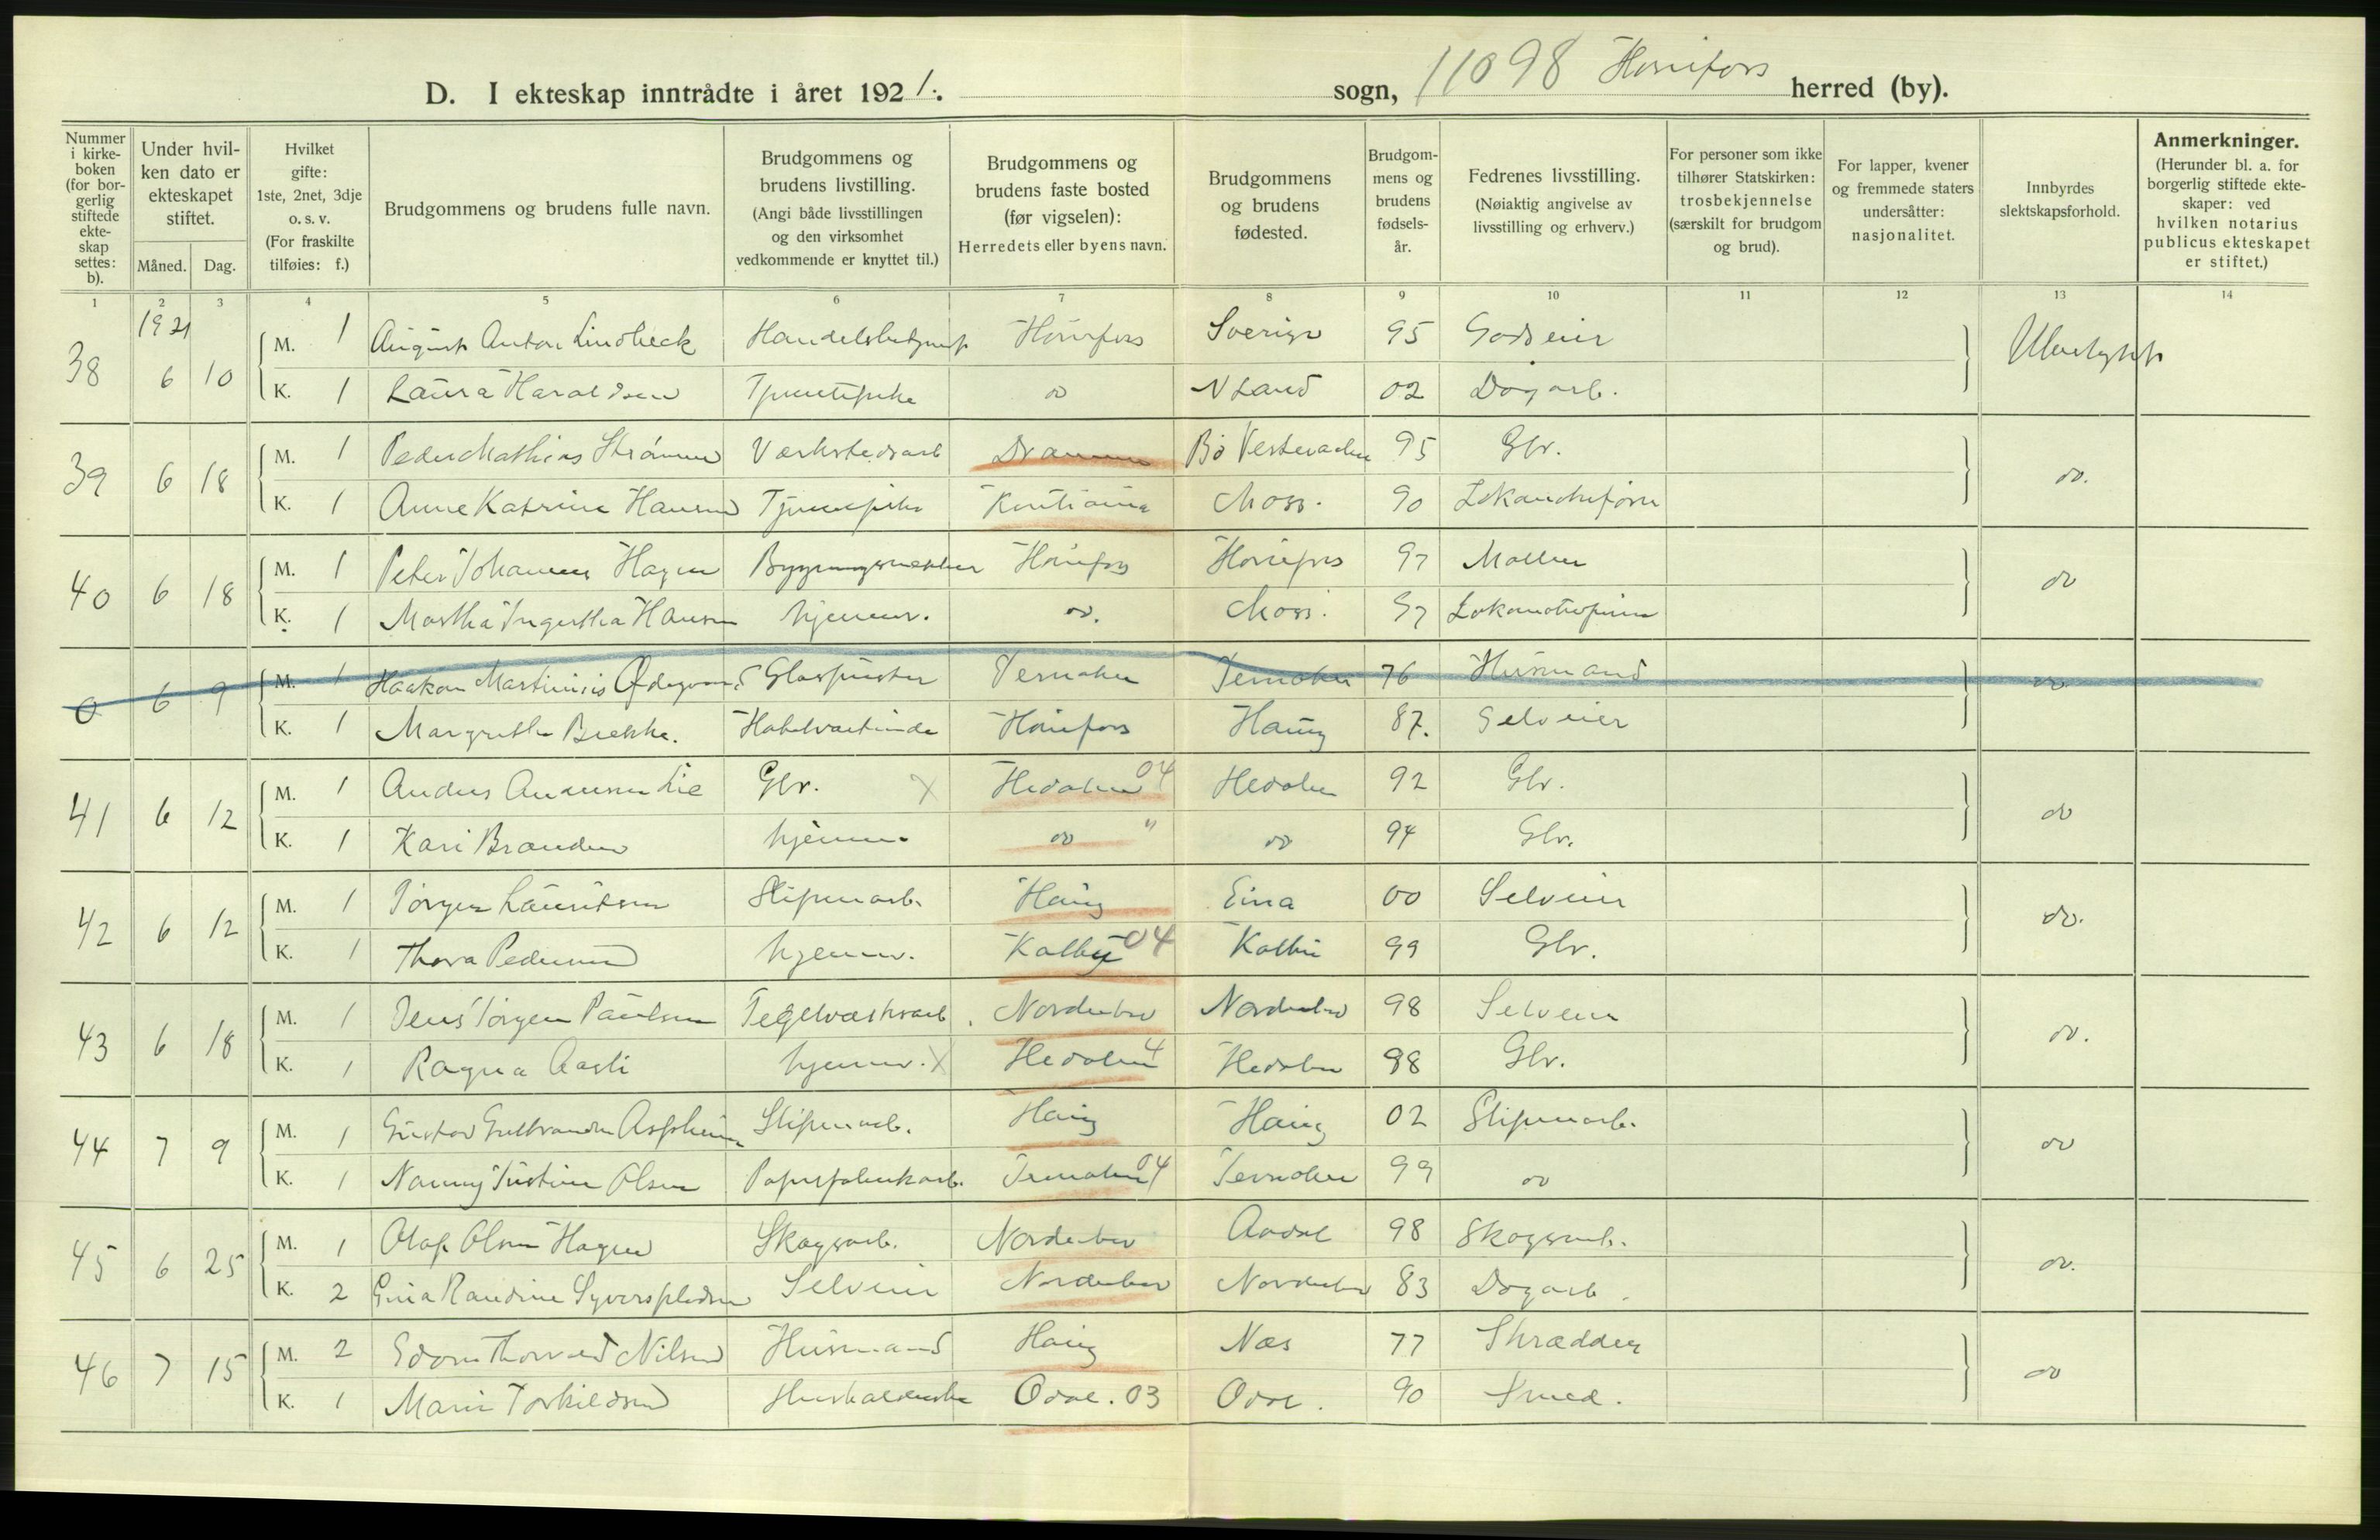 D. I ekteskap inntrådte i året 1921. sogn, 11098 Hønefoss herred (by).
Nummer i kirkeboken (for borgerlig stiftede ekteskap settes: b).
Under hvilken dato er ekteskapet stiftet.
Måned. Dag.
Hvilket gifte: 1ste, 2net, 3dje o. s. v. (For fraskilte tilføies: f.)
Brudgommens og brudens fulle navn.
Brudgommens og brudens livstilling. (Angi både livsstillingen og den virksomhet vedkommende er knyttet til.)
Brudgommens og brudens faste bosted (før vigselen): Herredets eller byens navn.
Brudgommens og brudens fødested.
Brudgommens og brudens fødselsår.
Fedrenes livsstilling. (Nøiaktig angivelse av livsstilling og erhverv.)
For personer som ikke tilhører Statskirken: trosbekjennelse (særskilt for brudgom og brud).
For lapper, kvener og fremmede staters undersåtter: nasjonalitet.
Innbyrdes slektskapsforhold.
Anmerkninger. (Herunder bl. a. for borgerlig stiftede ekteskaper: ved hvilken notarius publicus ekteskapet er stiftet.)
1 2 3 4 5 6 7 8 9 10 11 12 13 14
1921
38 6 10 M. 1 August Anton Lindbeck Hønefoss Sverige 95 Godseier Ubeslektet
K. 1 Laura Haraldsen Tjenestepike do N Land 02 Dagarb.
39 6 18 M. 1 Peder Mathias Strømmen Værkstedsarb Drammen Bø Vesteraalen 95 Gbr. do.
K. 1 Anne Katrine Hansen Tjenestepike Kristiania Moss. 90 Lokomotivfører
40 6 18 M. 1 Peter Johannes Hagen Bygningssnekker Hønefoss Hønefoss 97 Møller do
K. 1 Martha Ingertha Hansen hjemmev. do. Moss. 97 Lokomotivfører
0 6 9 M. 1 Haakon Martinius Ødegaard Glaspuster Jevnaker Jevnaker 76 Husmand do.
K. 1 Margrethe Brekke. Hotelværtinde Hønefoss Haug 87. Selveier
41 6 12 M. 1 Anders Andersen Lie Gbr. X Hedalen 04 Hedalen 92 Gbr. do
K. 1 Kari Branden hjemme. do " do 94 Gbr.
42 6 12 M. 1 Jørgen Lauritsen Sliperiarb. Haug Eina 00 Selveier do.
K. 1 Thora Pedersen hjemmev. Kolbu 04 Kolbu 99 Gbr.
43 6 18 M. 1 Jens Jørgen Paulsen Tegelværksarb. Norderhov Norderhov 98 Selveier do.
K. 1 Ragna Aasli hjemmev. X Hedalen 4 Hedalen 98 Gbr.
44 7 9 M. 1 Gustav Gulbrandsen Aspheim Sliperiarb. Haug Haug 02 Sliperiarb. do
K. 1 Nanny Justine Olsen Papirfabrikarb. Jevnaker 04 Jevnaker 99 do
45 6 25 M. 1 Olaf Olsen Hagen Skogsarb. Norderhov Aadal 98 Skogsarb. do.
K. 2 Gina Randine Selveier Norderhov Norderhov 83 Dagarb.
46 7 15 M. 2 Thorvald Nilsen Husmand Haug Næs 77 Skrædder do
K. 1 Marie Torkildsen Husholderske Odal. 03 Odal. 90 Smed.